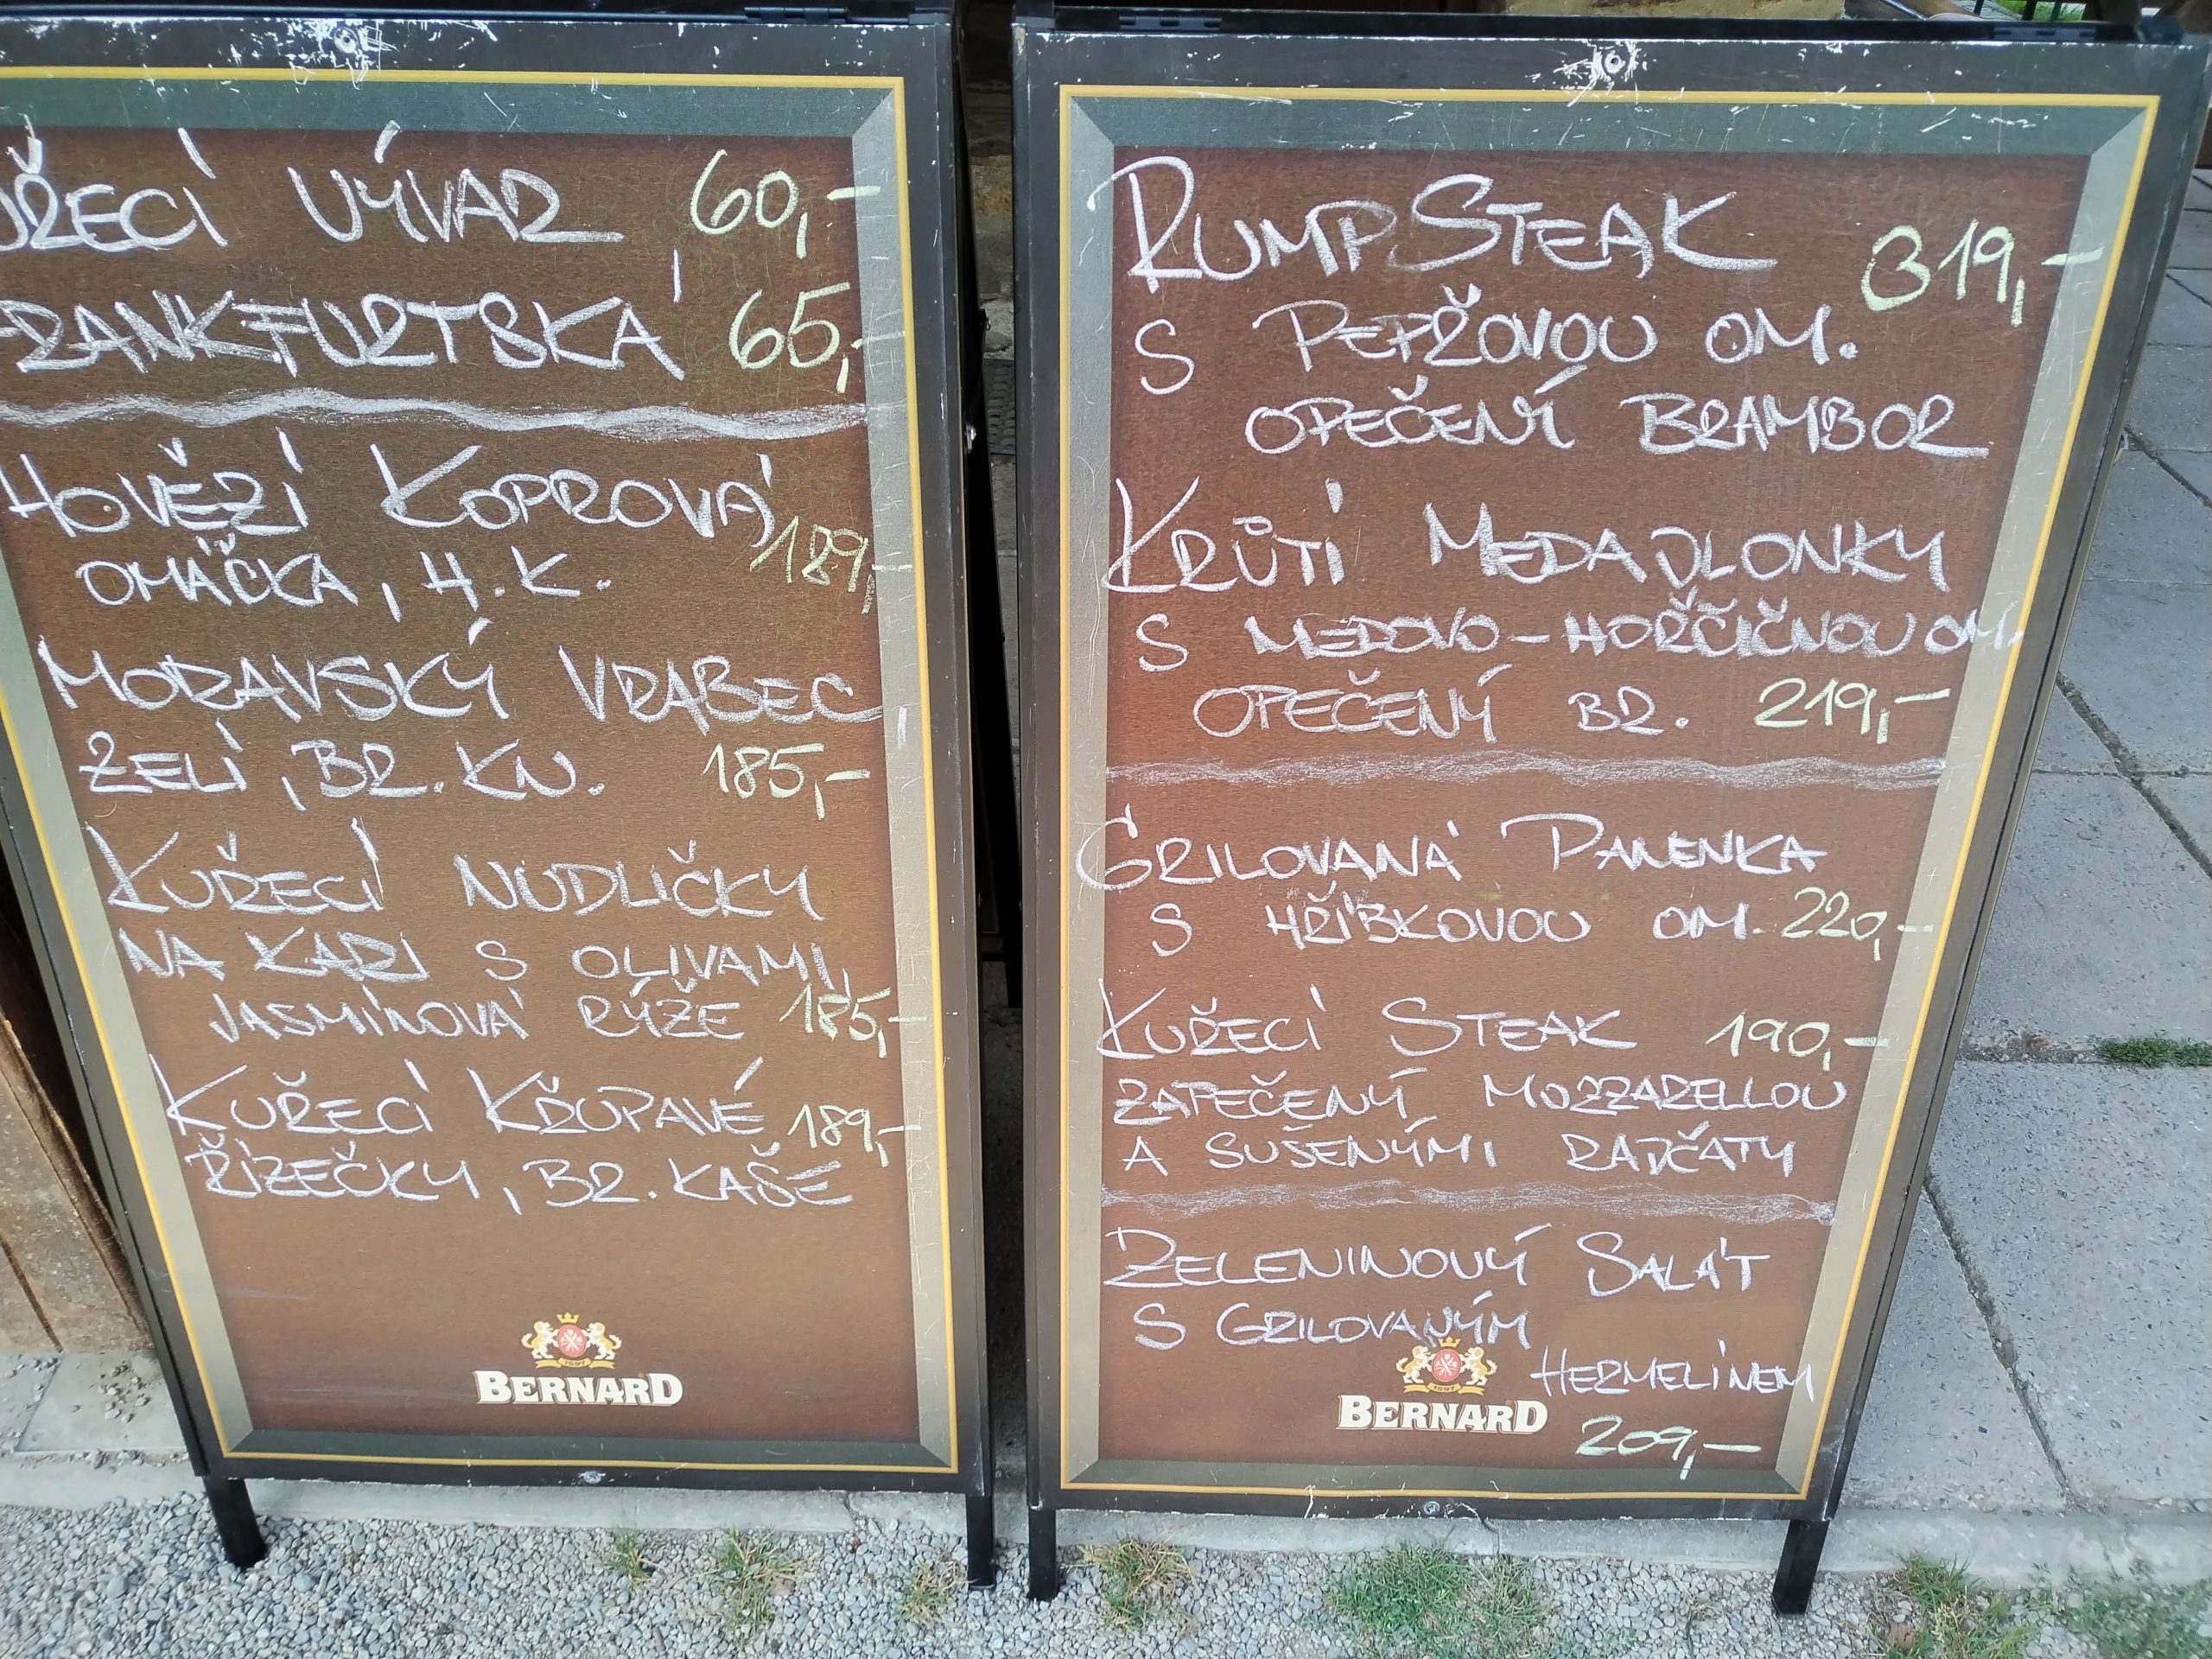 UŘECÍ VÝVAR 60,-
FRANKFURTSKÁ 65,-
HOVĚZÍ KOPROVÁ
OMÁČKA, H.K. 189,-
MORAVSKÝ VRABEC
ZELÍ, BR. KN. 185,-
KUŘECÍ NUDLIČKY
NA KARI S OLIVAMI,
JASMÍNOVÁ RÝŽE 185,-
KUŘECÍ KŘUPAVÉ 189,-
ŘÍZEČKY, BR. KAŠE
1597
BERNARD
RUMPSTEAK 319,-
S PEPŘOVOU OM.
OPEČENÍ BRAMBOR
KRŮTÍ MEDADLONKY
S MEDOVO-HOŘČIČNOU OM.
OPEČENÝ BR. 219,-
GRILOVANÁ PANENKA
S HŘÍBKOVOU OM. 220,-
KUŘECÍ STEAK 190,-
ZAPEČENÝ MOZZARELLOU
A SUŠENÝMI RAJČATY
ZELENINOVÝ SALÁT
S GRILOVANÝM
HERMELÍNEM
1597
BERNARD
209,-